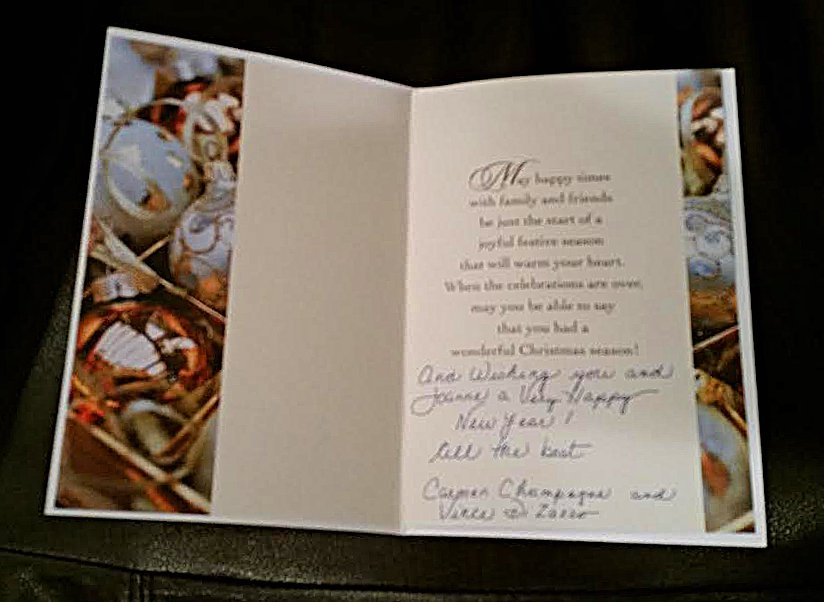 May happy times
with family and friends
be just the start of a
joyful festive season
that will warm your heart.
When the celebrations are over,
may you be able to say
that you had a
wonderful Christmas season!
And Wishing you and
Joanne a Very Happy
New Year!
All the best
Carmen Champagne and
Vince Di